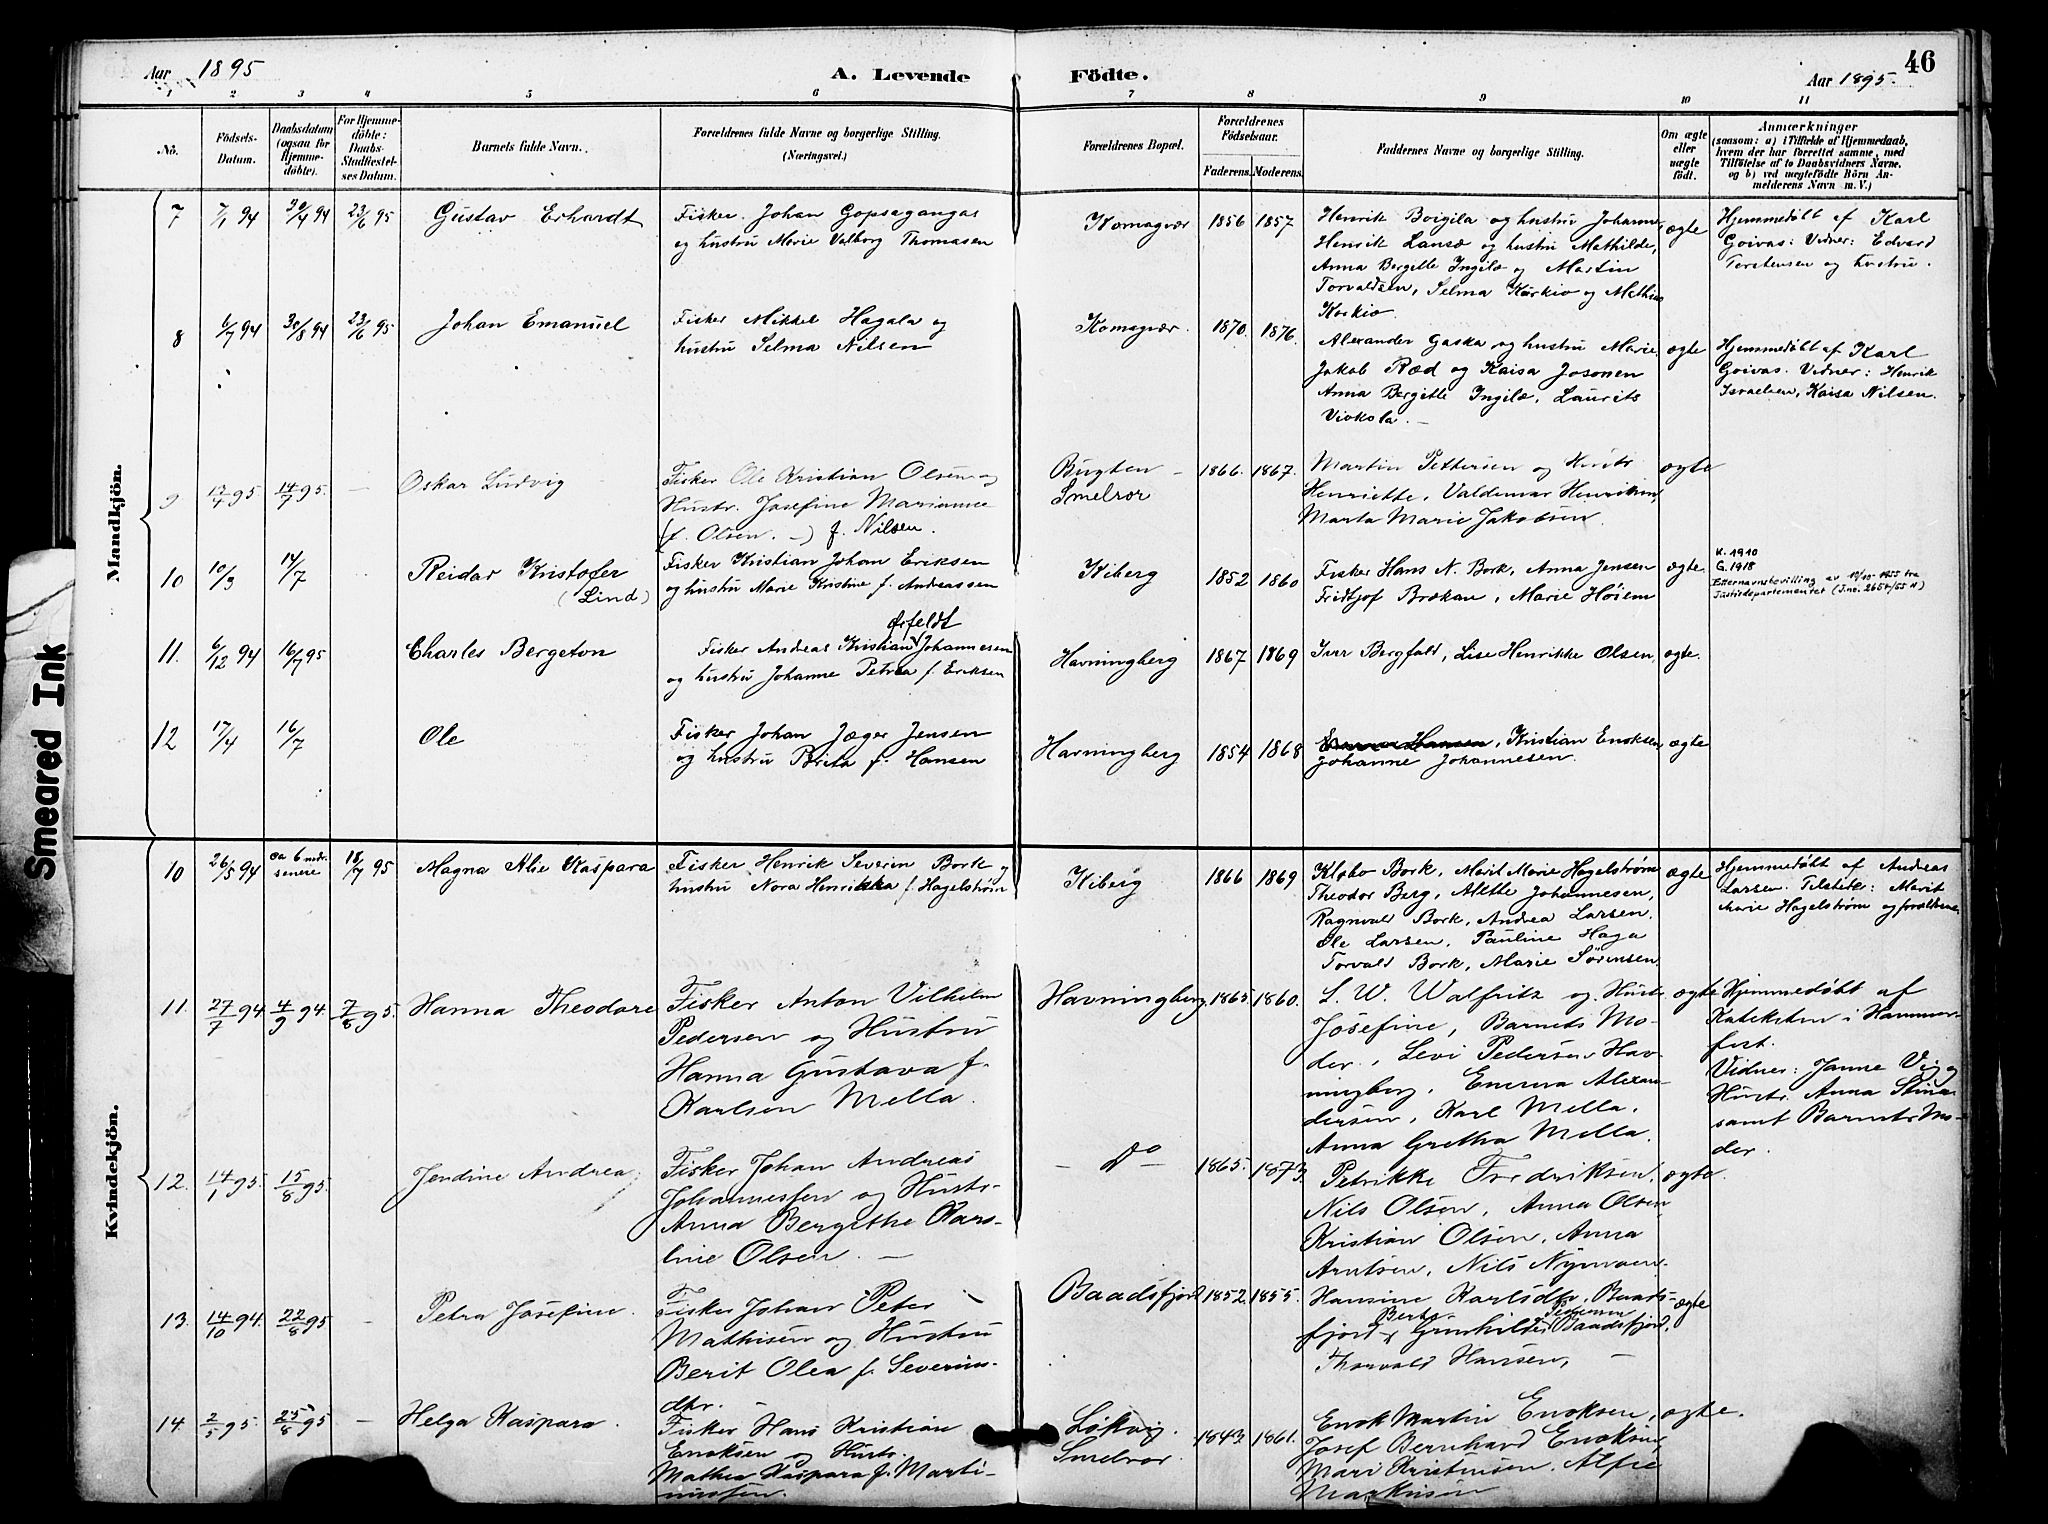 Aar 1895
A. Levende
Födte.
Aar 1895.
46
1 2 3 4 5 6 7 8 9 10 11
No.
Födsels-
Datum.
Daabsdatum
(ogsaa for
Hjemme-
döbte).
For Hjemme-
döbte:
Daabs-
Stadfæstel-
ses Datum.
Barnets fulde Navn.
Forældrenes fulde Navne og borgerlige Stilling.
(Næringsvei.)
Forældrenes Bopæl.
Forældrenes
Födselsaar.
Faderens. Moderens.
Faddernes Navne og borgerlige Stilling.
Om ægte
eller
uægte
født.
Anmærkninger
(saasom: a) i Tilfælde af Hjemmedaab,
hvem der har forrettet samme, med
Tilföielse af to Daabsvidners Navne,
og b) ved uægtefödte Börn An-
melderens Navn m. V.)
Mandkjön.
7 7/1 94 29/4 94 23/6 95 Gustav Erhardt
Fisker Johan Gopsagangas
og hustru Marie Valborg Thomasen
Komagvær 1856 1857
Henrik Boigila og hustru Johanne,
Henrik Lansæ og hustru Mathilde,
Anna Bergitte Ingilæ og Martin
Torvaldsen, Selma Karkio og Mathias
Korkio
ægte
Hjemmedøbt af Karl
Goivas: Vidner: Edvard
Torstensen og hustru.
8 6/7 94 30/8 94 23/6 95 Johan Emanuel
Fisker Mikkel Hagala og
hustru Selma Nilsen
Komagvær. 1870. 1876.
Alexander Gaska og hustru Marie,
Jakob Ræd og Kaisa Josonen
Anna Bergitte Ingilæ, Laurits
Viokola.
ægte
Hjemmedøbt af Karl
Goivas. Vidner: Henrik
Israelsen, Kaisa Nilsen.
9 17/4 95 14/7 95. - Oskar Ludvig
Fisker Ole Kristian Olsen og
Hustr. Josefine Marianne
(f. Olsen. -) f. Nilsen.
Bugten -
Smelror
1866. 1867.
Martin Pettersen og Hustr
Henriette, Valdemar Henriksen,
Marta Marie Jakobsen.
ægte
10 10/3 14/7 - Reidar Kristofer
(Lind)
Fisker Kristian Johan Eriksen
og hustru Marie Kristine f. Andreassen
Kiberg 1852 1860
Fisker Hans N. Bork, Anna Jensen
Fridtjof Brækan, Marie Høiem
ægte
K. 1910
G. 1918
Etternavnsbevilling av 1955 fra
Justisdepartementet
11. 6/12 94 16/7 95 Charles Bergeton
Ørfeldt
Fisker Andreas Kristian Johannesen
og hustru Johanne Petrea f. Eriksen
Havningberg 1867 1869
Iver Bergfald, Lise Henrikke Olsen,
ægte.
12 17/4 16/7 Ole
Fisker Johan Jæger Jensen
og hustru Brita f. Hansen
Havningberg 1854 1868
Hansen, Kristian Enoksen,
Johanne Johannesen.
ægte
Kvindekjön.
10 26/5 94 ca 6 mdr.
senere
18/7 95 Magna Alie Kaspara
Fisker Henrik Severin Bork og
hustru Nora Henrikka f. Hagelstrøm
Kiberg 1866 1869
Bork, Marit Marie Hagelstrøm
Theodor Berg, Alette Johannesen,
Ragnvald Bork, Andrea Larsen.
Ole Larsen, Pauline Haga
Torvald Bork, Marie Sørensen.
ægte
Hjemmedøbt af Andreas
Larsen. Tilstede: Marit
Marie Hagelstrøm og forældrene.
11. 27/7 94 4/9 94. 7/8 95. Hanna Theodore
Fisker Anton Vilhelm
Pedersen og Hustru
Hanna Gustava f.
Karlsen Mella.
Havningberg. 1865. 1860.
L. W. Walfritz og Hust
Josefine, Barnets Mo-
der, Levi Pedersen Hav-
ningberg, Emma Alexan-
dersen, Karl Mella,
Anna Gretha Mella.
ægte
Hjemmedøbt af
Kateketen i Hammer-
fest.
Vidner: Janne Vig og
Hustr. Anna Stina
samt Barnets Mo-
der.
12. 14/1 95. 15/8 95. Jendine Andrea
Fisker Johan Andreas
Johannessen og Hustr.
Anna Bergethe Karo-
line Olsen. -
- Do - 1865. 1873.
Petrikke Fredriksen,
Nils Olsen, Anna Olsen,
Kristian Olsen, Anna
Arntsen, Nils Nymoen.
ægte.
13. 14/10 94. 22/8 95 - Petra Josefine.
Fisker Johan Peter
Mathisen og Hustru
Berit Olea f. Severins-
dtr. -
Baadsfjord 1852. 1855.
Hansine Karlsdtr. Baads-
fjord, Berte Gunhilde Pedersen Baadsfjord,
Thorvald Hansen, -
ægte
14. 2/5 95. 25/8 95 - Helga Kaspara.
Fisker Hans Kristian
Enoksen og Hustr.
Mathea Kaspara f. Marti-
nussen.
Løkvig.
Smelror.
1843. 1861.
Enok Martin Enoksen,
Josef Bernhard Enoksen,
Mari Kristensen. Alfie
Markusen
ægte.
Smeared Ink